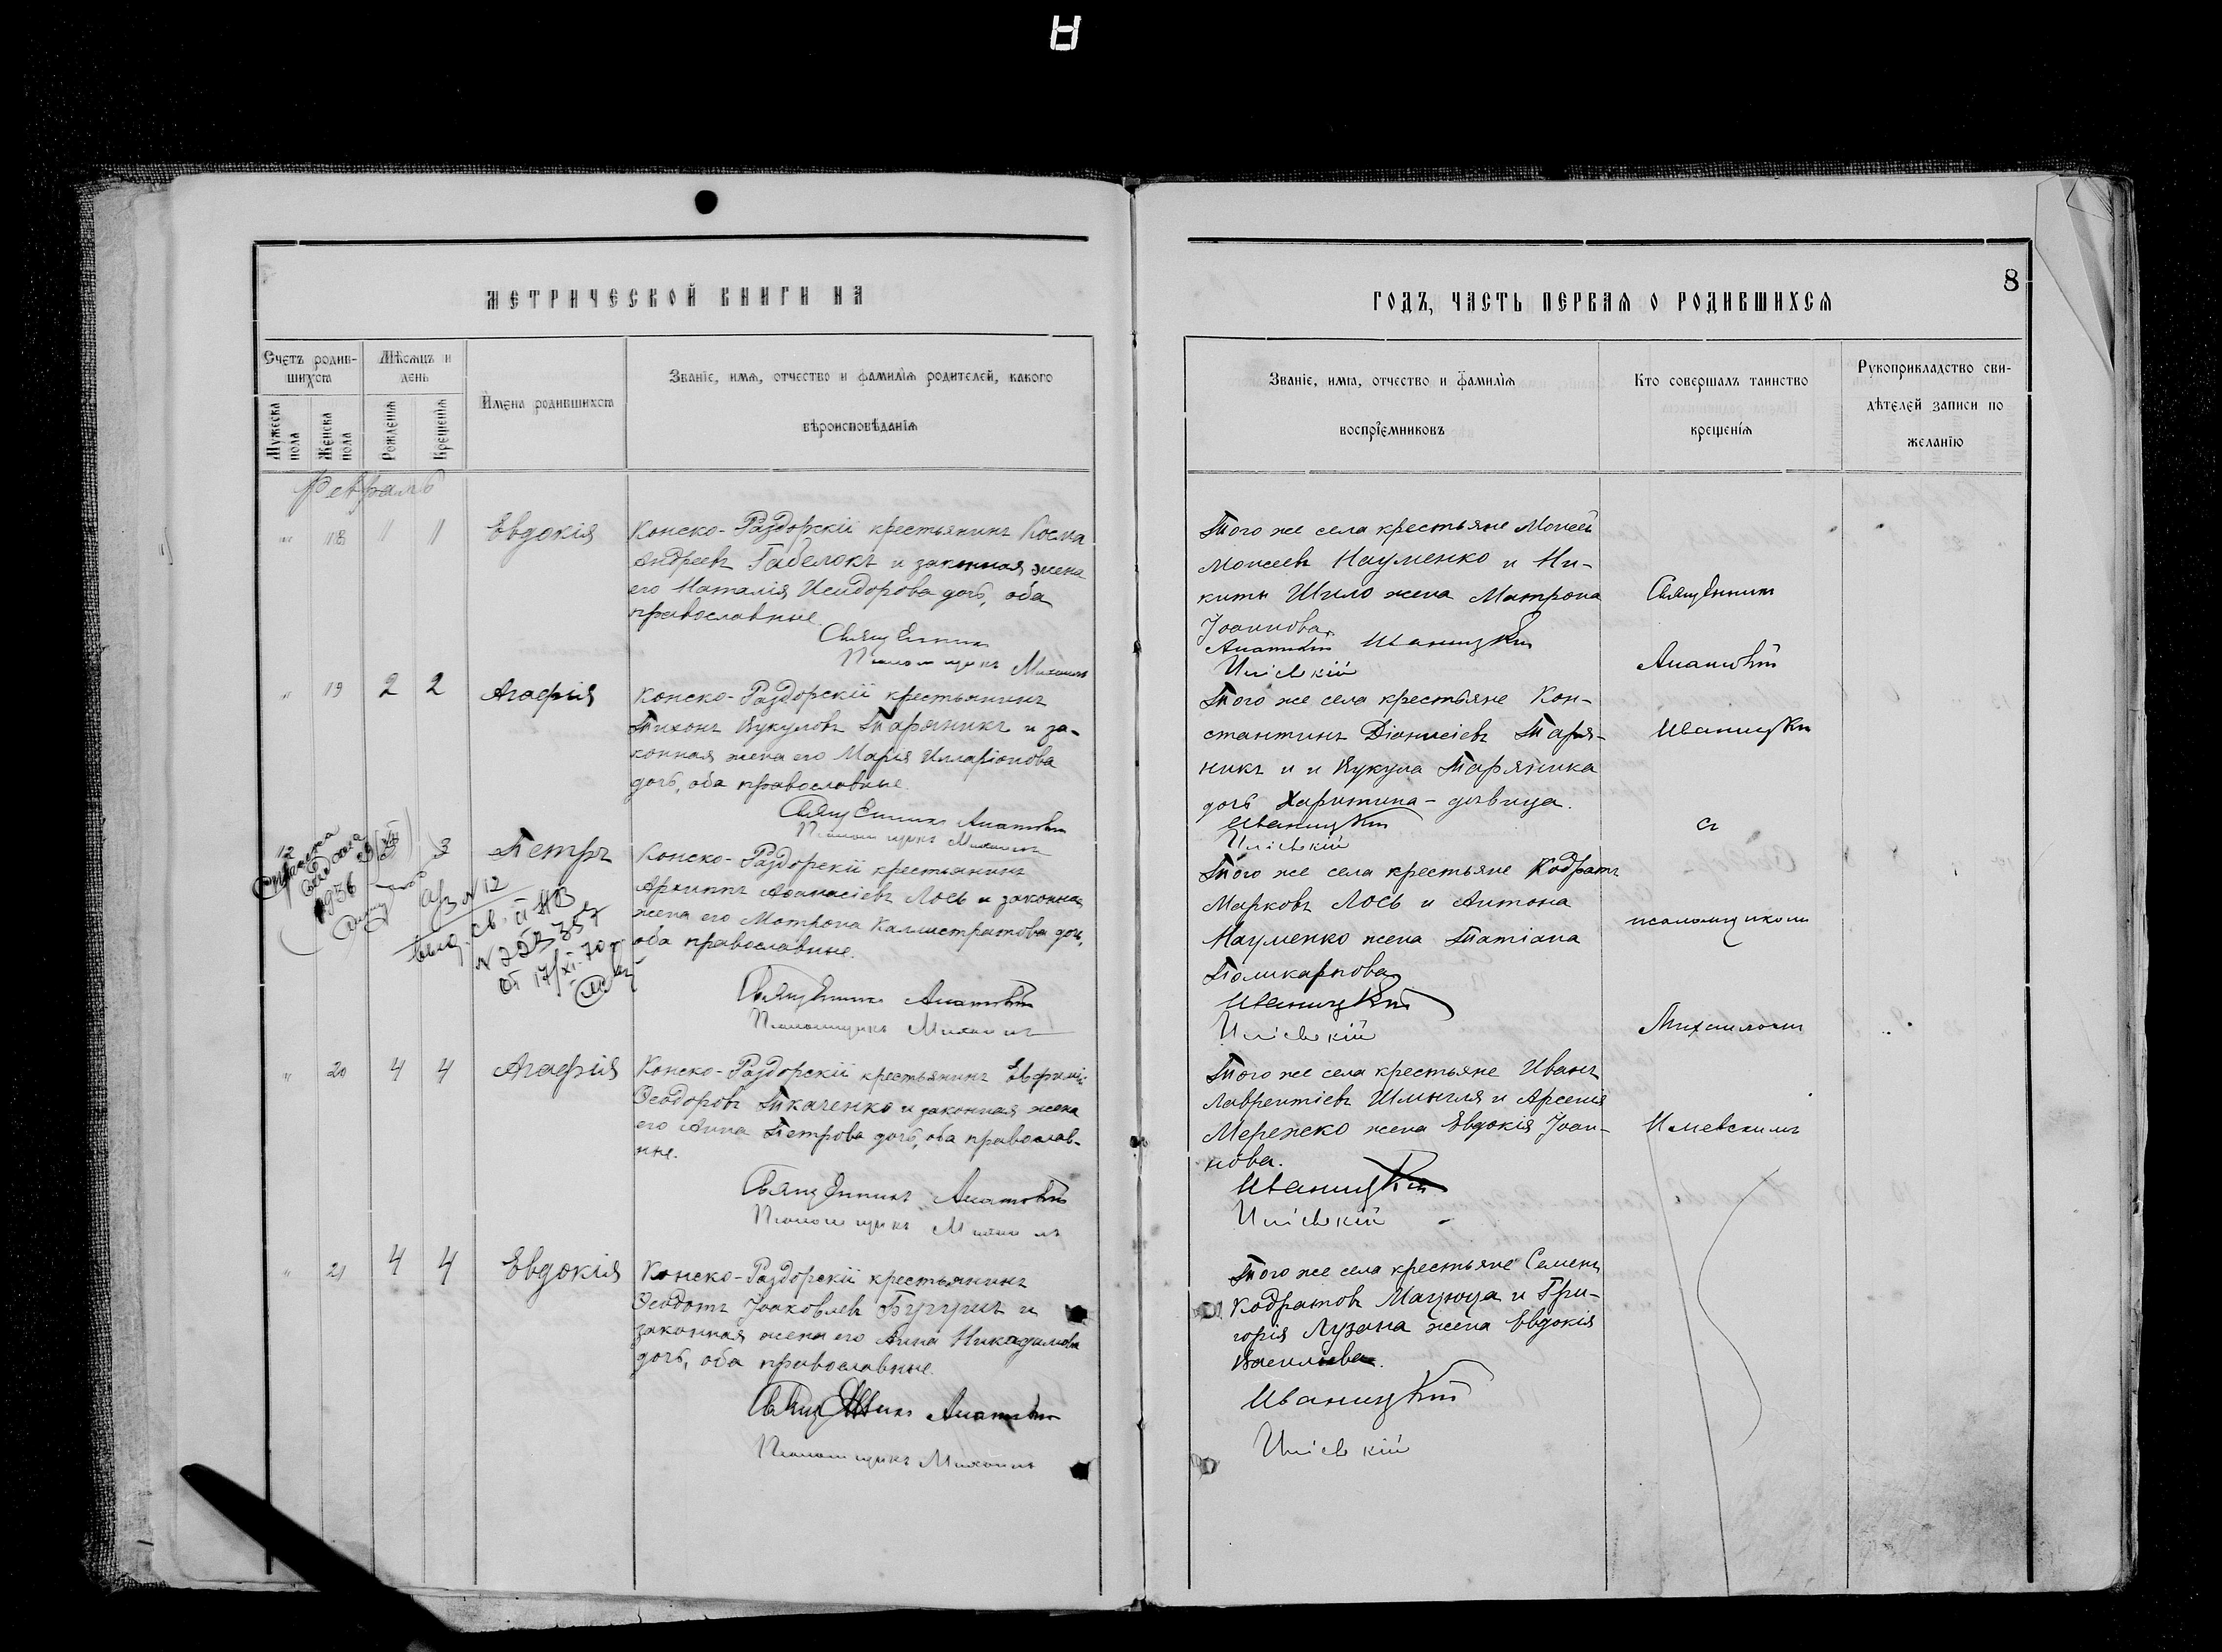 8
МЕТРИЧЕСКОЙ КНИГИ НА
ГОДЪ, ЧАСТЬ ПЕРВАЯ О РОДИВШИХСЯ
Счетъ родив-
шихся
Мужеска пола
Женска пола
Мѣсяцъ и
день
Рожденія
Крещенія
Имена родившихся
Званіе, имя, отчество и фамилія родителей, какого
вѣроисповѣданія
Званіе, имя, отчество и фамилія
воспріемниковъ
Кто совершалъ таинство
крещенія
Рукоприкладство сви-
дѣтелей записи по
желанію
Февраль
18
Евдокія
Конско-Раздорскій крестьянинъ Косма
Андреевъ Габелокъ и законная жена
его Наталія Исидорова дочь, оба
православные.
Священникъ
Псаломщикъ Михаилъ
Того же села крестьяне Моисей
Моисеевъ Науменко и Ни-
киты Шило жена Матрона
Іоаннова.
Иваницкій
19 2 2 Агафія
Конско-Раздорскій крестьянинъ
Тихонъ Вукуловъ Таряникъ и за-
конная жена его Марія Илларіонова
дочь, оба православные.
Священникъ
Псаломщикъ Михаилъ
Того же села крестьяне Кон-
стантинъ Діонисіевъ Таря-
никъ и и Вукула Таряника
дочь Харитина - дѣвица.
Иваницкій
12
3
Петръ
1936
№ 12
выд. св. II НВ
от 17/XI-70 г.
Конско-Раздорскій крестьянинъ
Архиппъ Аѳанасіевъ Лось и законная
жена его Матрона Каллистратова дочь,
оба православные.
Священникъ
Псаломщикъ Михаилъ
Того же села крестьяне Кодратъ
Марковъ Лось и Антона
Науменко жена Татіана
Поликарпова
Иваницкій
20 4 4 Агафія
Конско-Раздорскій крестьянинъ Евфимій
Ѳеодоровъ Ткаченко и законная жена
его Анна Петрова дочь, оба православ-
ные.
Священникъ
Псаломщикъ Михаилъ
Того же села крестьяне Иванъ
Лаврентіевъ Шмыгля и Арсенія
Мережко жена Евдокія Іоан-
нова.
Иваницкій
21 4 4 Евдокія
Конско-Раздорскій крестьянинъ
Ѳеодотъ Іоаковлевъ и
законная жена его Анна Никодимова
дочь, оба православные.
Священникъ
Псаломщикъ Михаилъ
Того же села крестьяне Семенъ
Кодратовъ и Гри-
горія Лузана жена Евдокія
Василіева.
Иваницкій
Священникъ
Иваницкій
съ
псаломщикомъ
Михаиломъ